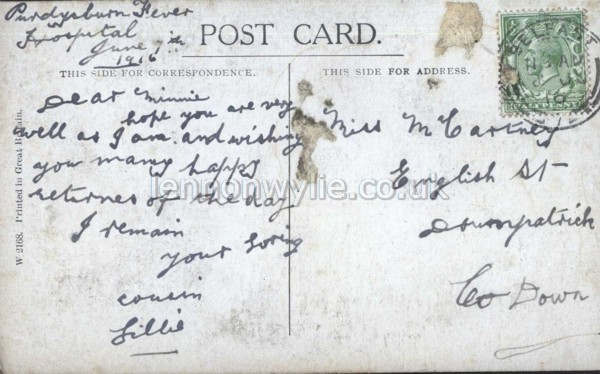 Purdysburn Fever
Hospital
June 1st
1916
POST CARD.
THIS SIDE FOR CORRESPONDENCE.
THIS SIDE FOR ADDRESS.
Dear Minnie
hope you are very
well as I am. and wishing
you many happy
returnes of the day
I remain
your loving
cousin
Lillie
Miss McCartney
English St
Downpatrick
Co Down
BELFAST
W 2168. Printed in Great Britain.
lennonwylie.co.uk